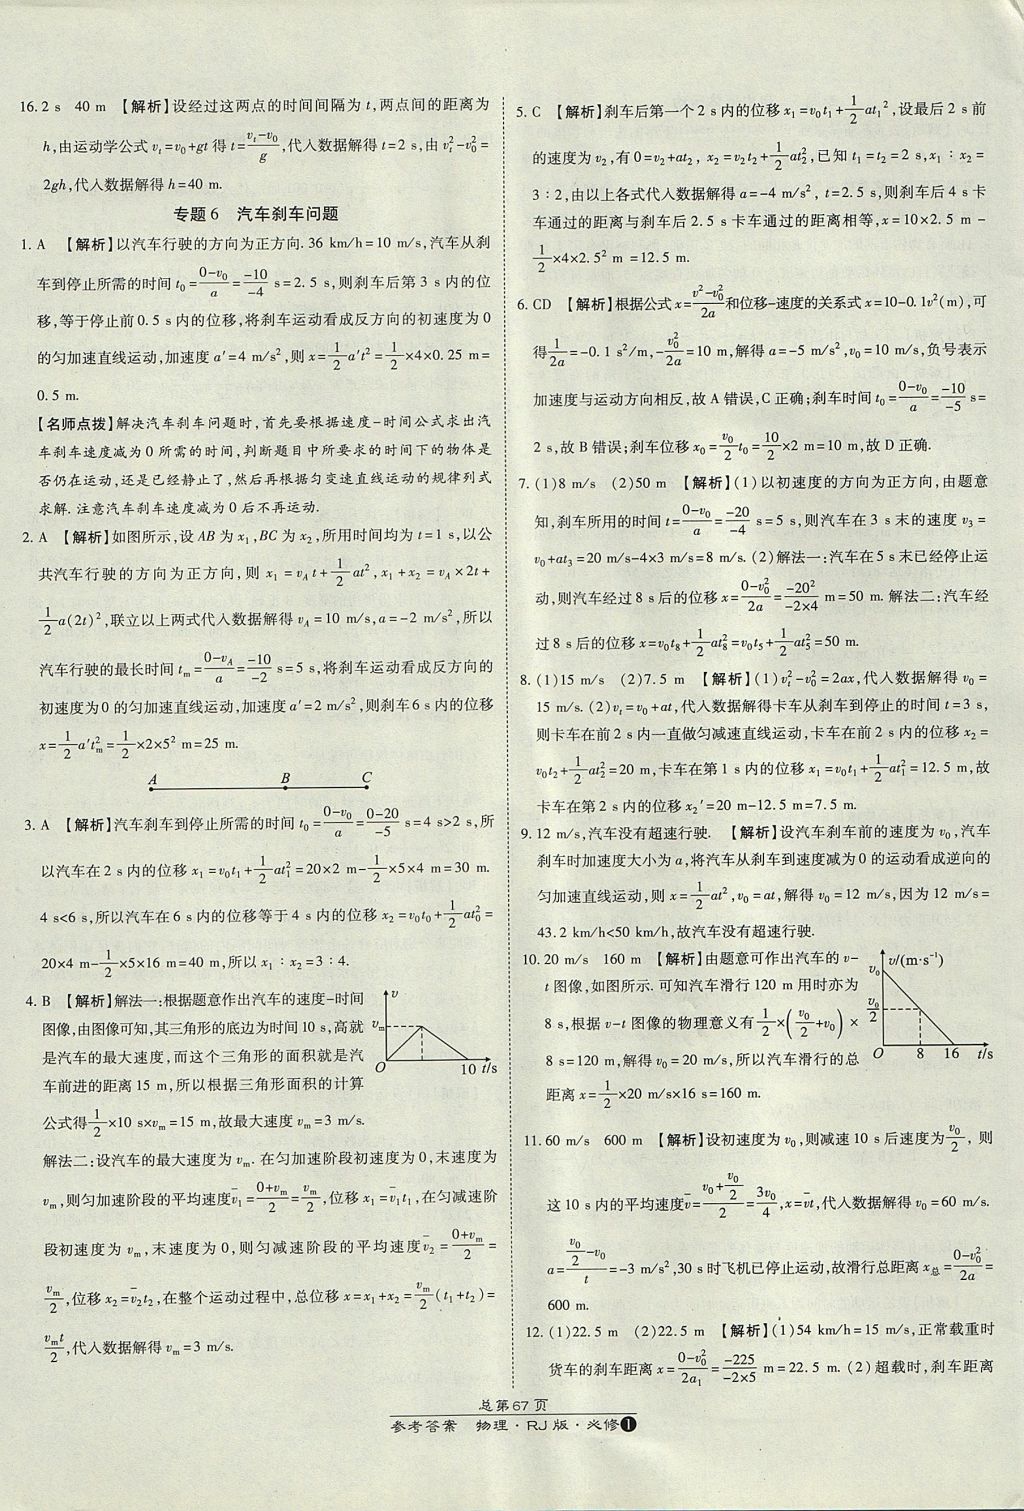 16. 2 s　40 m　【解析】设经过这两点的时间间隔为 t,两点间的距离为
h,由运动学公式 vₜ=v₀+gt 得 t=(vₜ-v₀)/g,代入数据解得 t=2 s,由 vₜ²-v₀²=
2gh,代入数据解得 h=40 m.
专题6　汽车刹车问题
1. A　【解析】以汽车行驶的方向为正方向. 36 km/h=10 m/s,汽车从刹
车到停止所需的时间 t₀=(0-v₀)/a=(-10)/(-4) s=2.5 s,则刹车后第 3 s 内的位
移,等于停止前0.5 s内的位移,将刹车运动看成反方向的初速度为0
的匀加速直线运动,加速度 a′=4 m/s²,则 x=1/2a′t²=1/2×4×0.25 m=
0.5 m.
【名师点拨】解决汽车刹车问题时,首先要根据速度-时间公式求出汽
车刹车速度减为0所需的时间,判断题目中所要求的时间下的物体是
否仍在运动,还是已经静止了,然后再根据匀变速直线运动的规律列式
求解. 注意汽车刹车速度减为0后不再运动.
2. A　【解析】如图所示,设 AB 为 x₁,BC 为 x₂,所用时间均为 t=1 s,以公
共汽车行驶的方向为正方向,则 x₁=v_A t+1/2at²,x₁+x₂=v_A×2t+
1/2a(2t)²,联立以上两式代入数据解得 v_A=10 m/s,a=-2 m/s²,所以
汽车行驶的最长时间 tₘ=(0-v_A)/a=(-10)/(-2) s=5 s,将刹车运动看成反方向的
初速度为0的匀加速直线运动,加速度 a′=2 m/s²,则刹车6 s内的位移
x=1/2a′tₘ²=1/2×2×5² m=25 m.
A　B　C
3. A　【解析】汽车刹车到停止所需的时间 t₀=(0-v₀)/a=(0-20)/(-5) s=4 s>2 s,所
以汽车在 2 s 内的位移 x₁=v₀t₁+1/2at₁²=20×2 m-1/2×5×4 m=30 m.
4 s<6 s,所以汽车在 6 s 内的位移等于 4 s 内的位移 x₂=v₀t₀+1/2at₀²=
20×4 m-1/2×5×16 m=40 m,所以 x₁∶x₂=3∶4.
4. B　【解析】解法一:根据题意作出汽车的速度-时间
图像,由图像可知,其三角形的底边为时间 10 s,高就
是汽车的最大速度,而这个三角形的面积就是汽
车前进的距离 15 m,所以根据三角形面积的计算
公式得1/2×10 s×vₘ=15 m,故最大速度 vₘ=3 m/s.
v
vₘ
O　10 t/s
解法二:设汽车的最大速度为 vₘ. 在匀加速阶段初速度为0,末速度为
vₘ,则匀加速阶段的平均速度v̄₁=(0+vₘ)/2=vₘ/2,位移 x₁=v̄₁t₁,在匀减速阶
段初速度为 vₘ,末速度为0,则匀减速阶段的平均速度v̄₂=(0+vₘ)/2=
vₘ/2,位移 x₂=v̄₂t₂,在整个运动过程中,总位移 x=x₁+x₂=vₘ/2(t₁+t₂)=
vₘt/2,代入数据解得 vₘ=3 m/s.
5. C　【解析】刹车后第一个 2 s 内的位移 x₁=v₀t₁+1/2at₁²,设最后 2 s 前
的速度为 v₂,有 0=v₂+at₂, x₂=v₂t₂+1/2at₂²,已知 t₁=t₂=2 s,x₁∶x₂=
3∶2,由以上各式代入数据解得 a=-4 m/s², t=2.5 s,则刹车后 4 s 卡
车通过的距离与刹车后 2.5 s 卡车通过的距离相等,x=10×2.5 m-
1/2×4×2.5² m=12.5 m.
6. CD　【解析】根据公式 x=(v²-v₀²)/2a和位移-速度的关系式 x=10-0.1v²(m),可
得1/2a=-0.1 s²/m,-v₀²/2a=10 m,解得 a=-5 m/s²,v₀=10 m/s,负号表示
加速度与运动方向相反,故 A 错误,C 正确;刹车时间 t₀=(0-v₀)/a=(-10)/(-5) s=
2 s,故 B 错误;刹车位移 x₀=v₀/2t₀=10/2×2 m=10 m,故 D 正确.
7. (1)8 m/s　(2)50 m　【解析】(1)以初速度的方向为正方向,由题意
知,刹车所用的时间 t=(0-v₀)/a=(-20)/(-4) s=5 s,则汽车在 3 s 末的速度 v₃=
v₀+at₃=20 m/s-4×3 m/s=8 m/s. (2)解法一:汽车在5 s末已经停止运
动,则汽车经过 8 s 后的位移 x=(0-v₀²)/2a=(-20²)/(-2×4) m=50 m. 解法二:汽车经
过 8 s 后的位移 x=v₀t₈+1/2at₈²=v₀t₅+1/2at₅²=50 m.
8. (1)15 m/s　(2)7.5 m　【解析】(1)vₜ²-v₀²=2ax,代入数据解得 v₀=
15 m/s. (2)vₜ=v₀+at,代入数据解得卡车从刹车到停止的时间 t=3 s,
则卡车在前 2 s 内一直做匀减速直线运动,卡车在前 2 s 内的位移 x₂=
v₀t₂+1/2at₂²=20 m,卡车在第 1 s 内的位移 x₁=v₀t₁+1/2at₁²=12.5 m,故
卡车在第 2 s 内的位移 x₂′=20 m-12.5 m=7.5 m.
9. 12 m/s,汽车没有超速行驶.　【解析】设汽车刹车前的速度为 v₀,汽车
刹车时加速度大小为 a,将汽车从刹车到速度减为0的运动看成逆向的
匀加速直线运动,则 x=1/2at²,v₀=at,解得 v₀=12 m/s,因为 12 m/s=
43.2 km/h<50 km/h,故汽车没有超速行驶.
10. 20 m/s　160 m　【解析】由题意可作出汽车的 v-
t 图像,如图所示. 可知汽车滑行 120 m 用时亦为
8 s,根据 v-t 图像的物理意义有1/2×(v₀/2+v₀)×
8 s=120 m,解得 v₀=20 m/s,所以汽车滑行的总
距离 x=1/2×20 m/s×16 s=160 m.
v/(m·s⁻¹)
v₀
v₀/2
O　8　16　t/s
11. 60 m/s　600 m　【解析】设初速度为 v₀,则减速 10 s 后速度为v₀/2,则
这 10 s 内的平均速度v̄=(v₀+v₀/2)/2=3v₀/4,x=v̄t,代入数据解得 v₀=60 m/s.
a=(v₀/2-v₀)/t=-3 m/s²,30 s 时飞机已停止运动,故滑行总距离 x总=(0-v₀²)/2a=
600 m.
12. (1)22.5 m　(2)22.5 m　【解析】(1)54 km/h=15 m/s,正常载重时
货车的刹车距离 x=(0-v₀²)/2a₁=(-225)/(-2×5) m=22.5 m. (2)超载时,刹车距离
总第67页
参考答案　物理·RJ版·必修❶